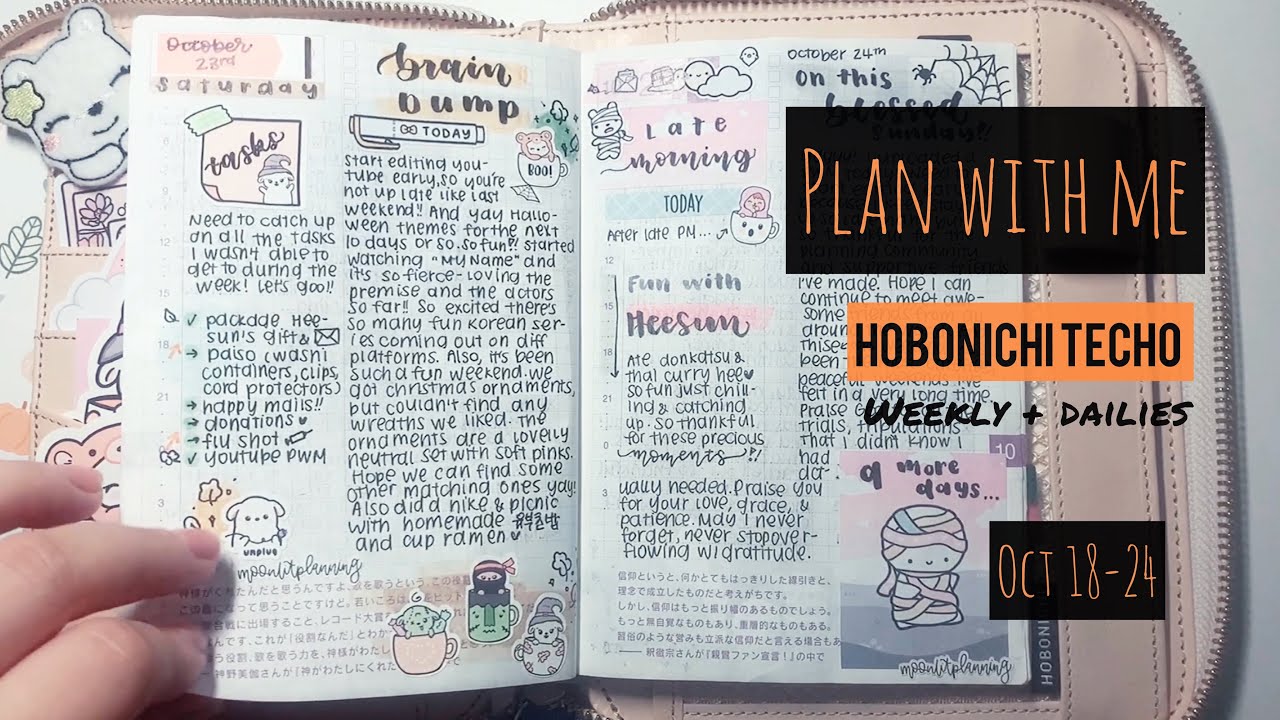 October
23rd
Saturday
tasks
Need to catch up
on all the tasks
I wasn't able to
get to during the
week! Let's goo!!
✓ package Hee-
sun's gift &
→ Daiso (washi
containers, clips,
cord protectors)
→ happy mails!!
→ donations ♥
→ flu shot
✓ youtube PWM
unplug
moonlitplanning
brain
Dump
TODAY
BOO!
Start editing you-
tube early, so you're
not up late like last
weekend!! And yay Hallo-
ween themes for the next
10 days or so. So fun!! Started
watching "My Name" and
it's so fierce-loving the
premise and the actors
so far!! So excited there's
so many fun Korean ser-
ies coming out on diff
platforms. Also, it's been
such a fun weekend. We
got christmas ornaments,
but couldn't find any
wreaths we liked. The
ornaments are a lovely
neutral set with soft pinks.
Hope we can find some
other matching ones yay!
Also did a hike & picnic
with homemade
and cup ramen ♥
October 24th
Late
morning
TODAY
After late PM...
Fun with
HeeSun
Ate donkatsu &
thai curry hee♥
so fun just chill-
ing & catching
up. So thankful
for these precious
moments ~!!
ually needed. Praise you
for your love, grace, &
patience. May I never
forget, never stop over-
flowing w/ gratitude.
信仰というと、何かとてもはっきりした線引きと、
理念で成立したものだと考えがちです。
しかし、信仰はもっと振り幅のあるものでしょう。
もっと無自覚なものもあり、重層的なものもある。
習俗のような営みも立派な信仰だと言える場合もあ
── 釈徹宗さんが『親鸞ファン宣言！』の中で
on this
blessed
Sunday!!
planning community
and supportive friends
I've made. Hope I can
continue to meet awe-
some friends from
around
been
peaceful weekends I've
felt in a very long time.
Praise
trials,
that I didn't know I
had
act-
10
9 more
days...
moonlitplanning
HOBONICHI
PLAN WITH ME
HOBONICHI TECHO
WEEKLY + DAILIES
OCT 18-24